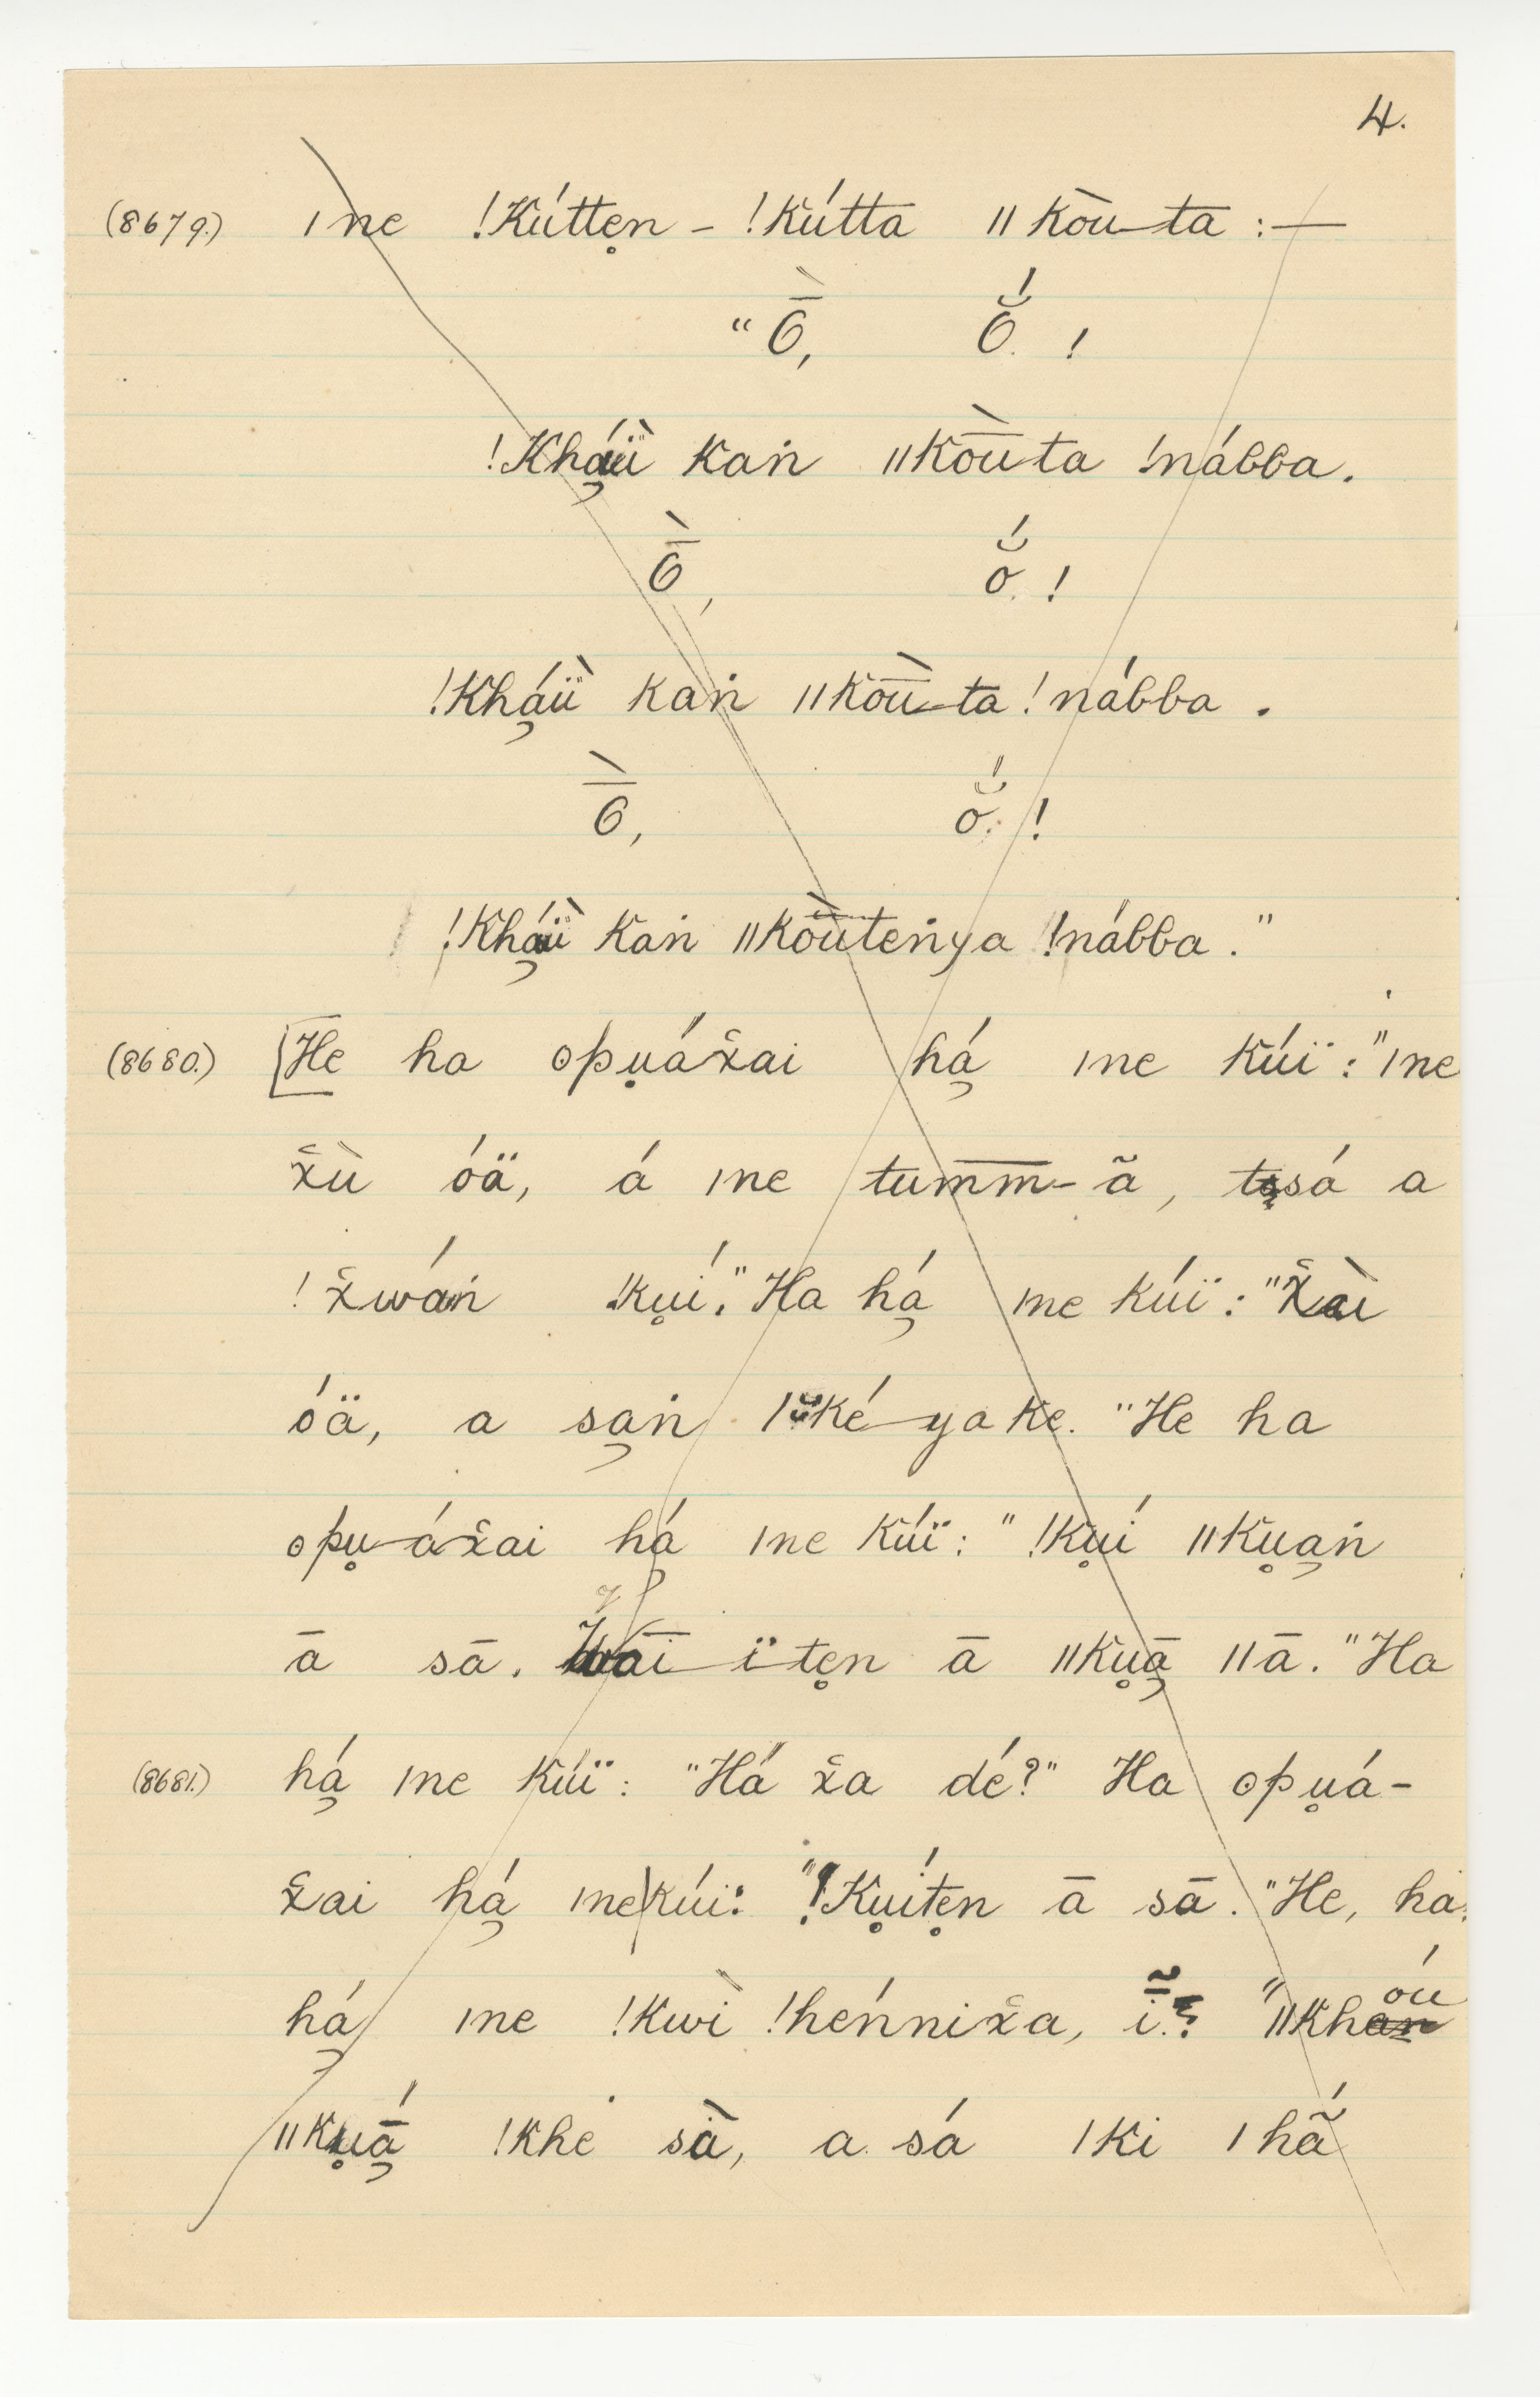 4.
(8679.) ǀne !Kúttẹn – !kútta ǁkòu-ta :—
“Ṑ, Ŏ́. !
!Kháṳ̈̀ kaṅ ǁkṑūta !nábba.
Ṑ, ŏ́. !
!Kháṳ̈̀ kaṅ ǁkṑū-ta !nábba .
Ṑ, ŏ́. !
!Kháṳ̈̀ kaṅ ǁkṑuteṅya !nábba .”
(8680.) [He ha ʘpu̥áx̌ai há̡ ǀne kúï : "ǀne
x̌ù óä, á ǀne tum̅m̅-ã, ta̡sá a
!x̌wáṅ !ku̥í." Ha há̡ ǀne kúï : "X̌aì
óä, a sa̡ṅ ǀkĕ́-ya ke. "He ha
ʘpu̥-áx̌ai há̡ ǀne kúï : " !ku̥í ǁku̥a̡ṅ
ā sā. āī-ï te̥n ā ǁku̥ā̡ ǁā. "Ha
(8681.) há̡ ǀne kúï : "Há x̌a dé?" Ha ʘpu̥á-
x̌ai há̡ ǀne|kúï: "!Ku̥íte̥n ā sā. "He, ha
há̡ ǀne !kwì !hénnix̌a, ī̃. "ǁkhóu
ǁku̥ā̡́ !khe sà, a sá ǀki ǀhã́